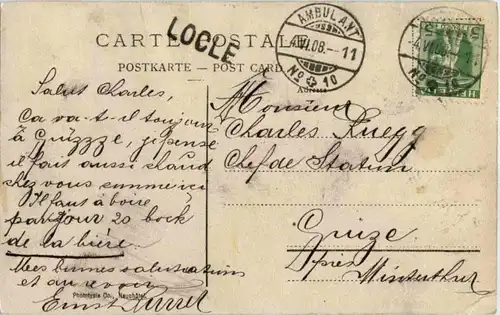 LOCLE
AMBULANT
4.VI.08.-11
No 10
CARTE POSTALE
POSTKARTE — POST CARD
Salut Charles,
Ca va-t-il toujours
à Grüzze, je pense
il fait aussi chaud
chez vous comme ici
Il faut à boire
par jour 20 bock
de la bière.
Mes bonnes salutations
et au revoir
Ernst
Phototypie Co., Neuchâtel
Adresse
Monsieur
Charles Ruegg
Chef de Station
Grüze
près Winterthur